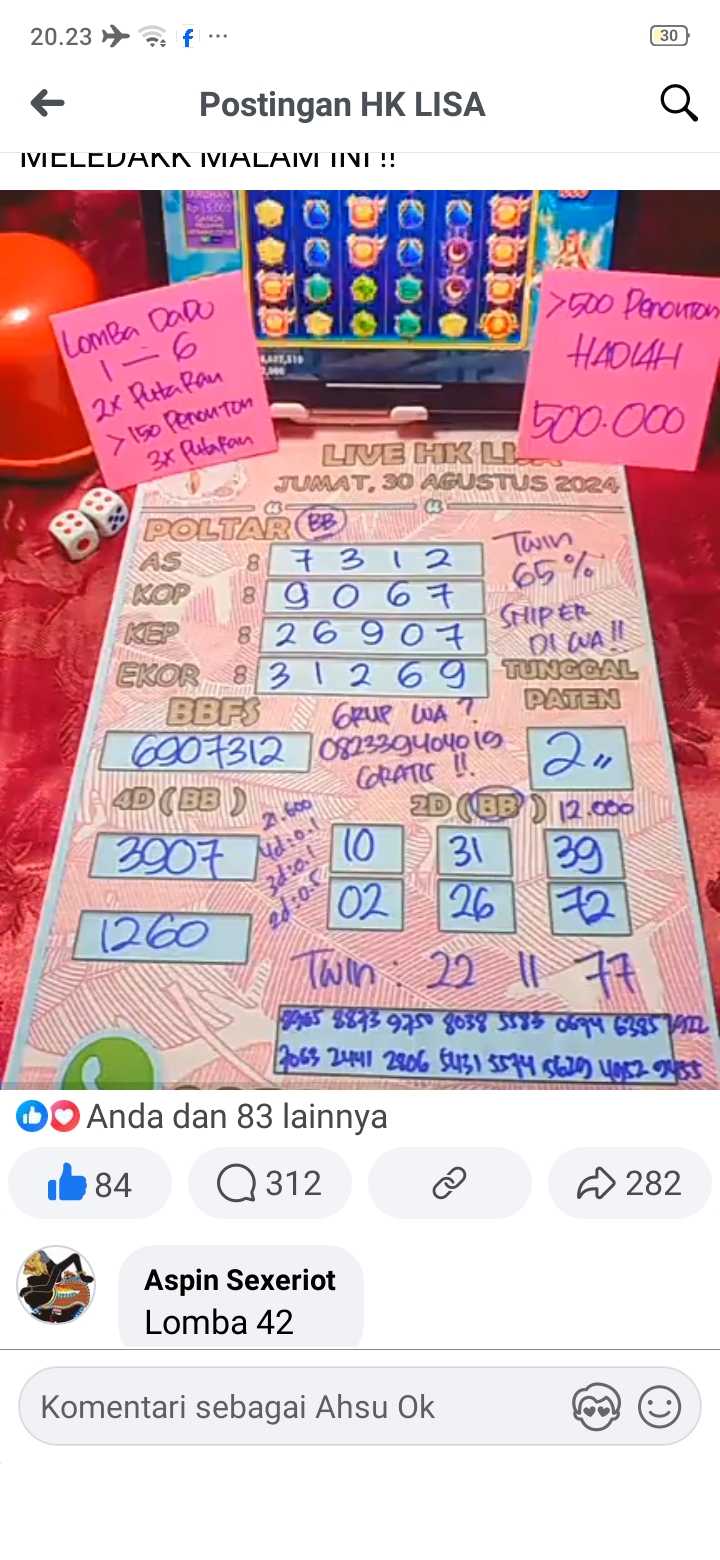 20.23
30
Postingan HK LISA
MELEDAKK MALAM INI !!
Rp 15.000
LOMBA DADU
1 — 6
2x PUTARAN
>150 PENONTON
3x PUTARAN
>500 PENONTON
HADIAH
500.000
LIVE HK
JUMAT, 30 AGUSTUS 2024
POLTAR (BB)
AS 8 7 3 1 2
KOP 8 9 0 6 7
KEP 8 2 6 9 0 7
EKOR 8 3 1 2 6 9
TWIN
65%
SHIPER
DI WA !!
TUNGGAL
PATEN
2 "
BBFS
6907312
GRUP WA ?
082339404019
GRATIS !!
4D (BB)
3907
1260
2:600
4d:0.1
3d:0.1
2d:0.5
2D (BB) 12.000
10 31 39
02 26 72
TWIN : 22 11 77
8965 8873 9750 8038 5583 0694 6385
7063 2441 2806 5431 5574 5629 4052 9455
Anda dan 83 lainnya
84 312 282
Aspin Sexeriot
Lomba 42
Komentari sebagai Ahsu Ok